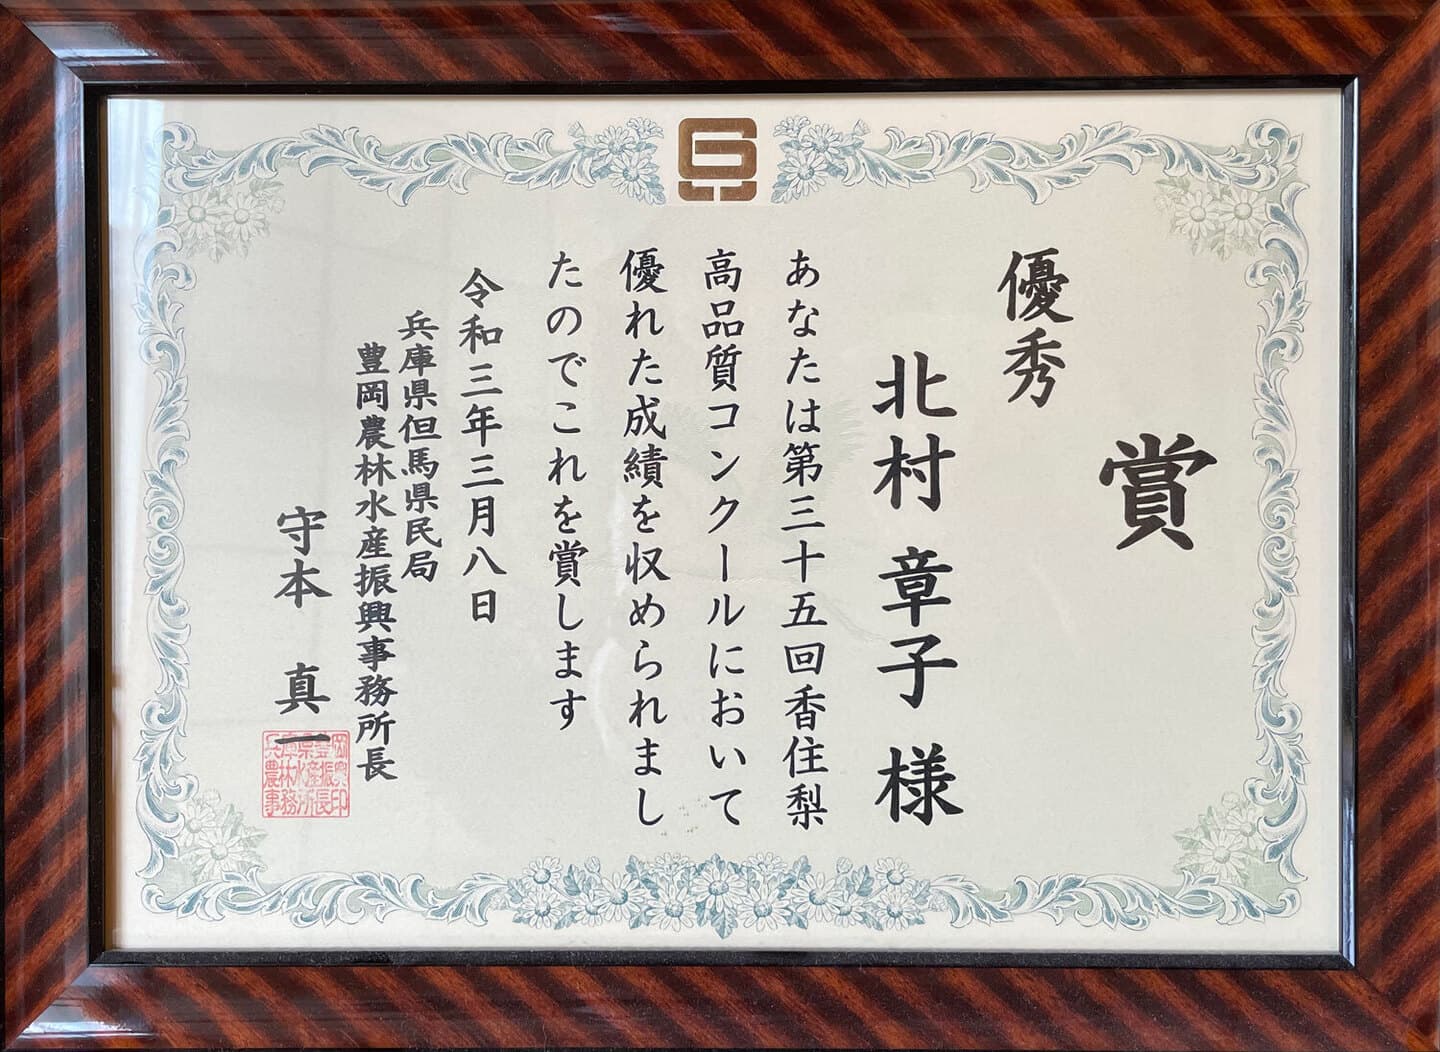 賞
優秀
北村 章子 様
あなたは第三十五回香住梨
高品質コンクールにおいて
優れた成績を収められまし
たのでこれを賞します
令和三年三月八日
兵庫県但馬県民局
豊岡農林水産振興事務所長
守本 真一